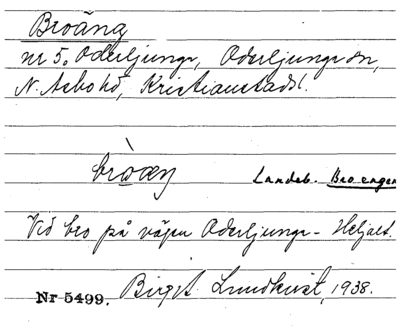 Broäng
nr 5. Oderljunga, Oderljunga sn,
N. Åsbo hd, Kristianstads l.
bròæŋ Landsb. Broengen
Vid bro på vägen Oderljunga - Heljalt.
Nr 5499. Birgit Lundkvist, 1938.